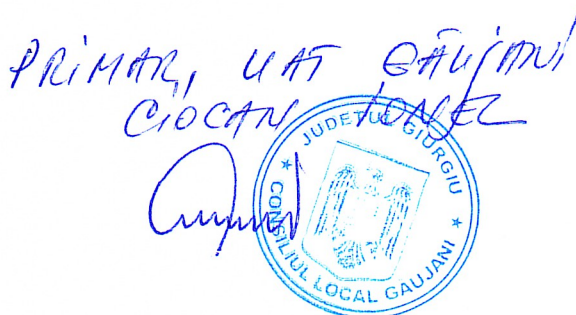 PRIMAR, UAT GĂUJANI
CIOCAN IONEL
JUDETUL GIURGIU
CONSILIUL LOCAL GAUJANI